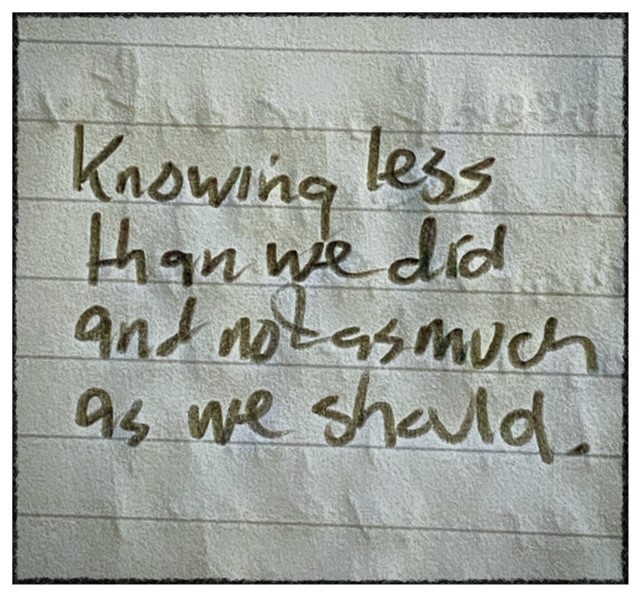 Knowing less
than we did
and not as much
as we should.